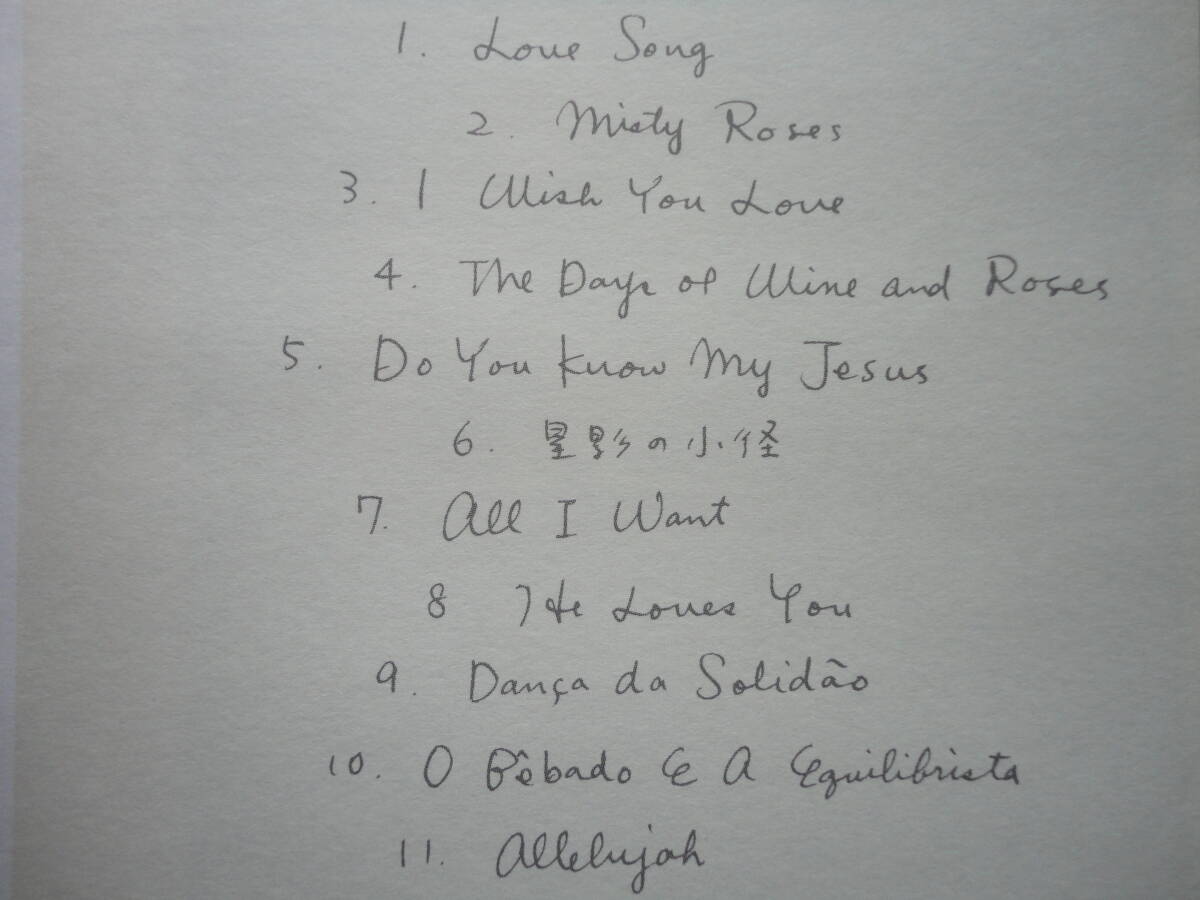 1. Love Song
2. Misty Roses
3. I Wish You Love
4. The Days of Wine and Roses
5. Do You Know My Jesus
6. 星影の小径
7. All I Want
8 He Loves You
9. Dança da Solidão
10. O Bêbado E A Equilibrista
11. Allelujah